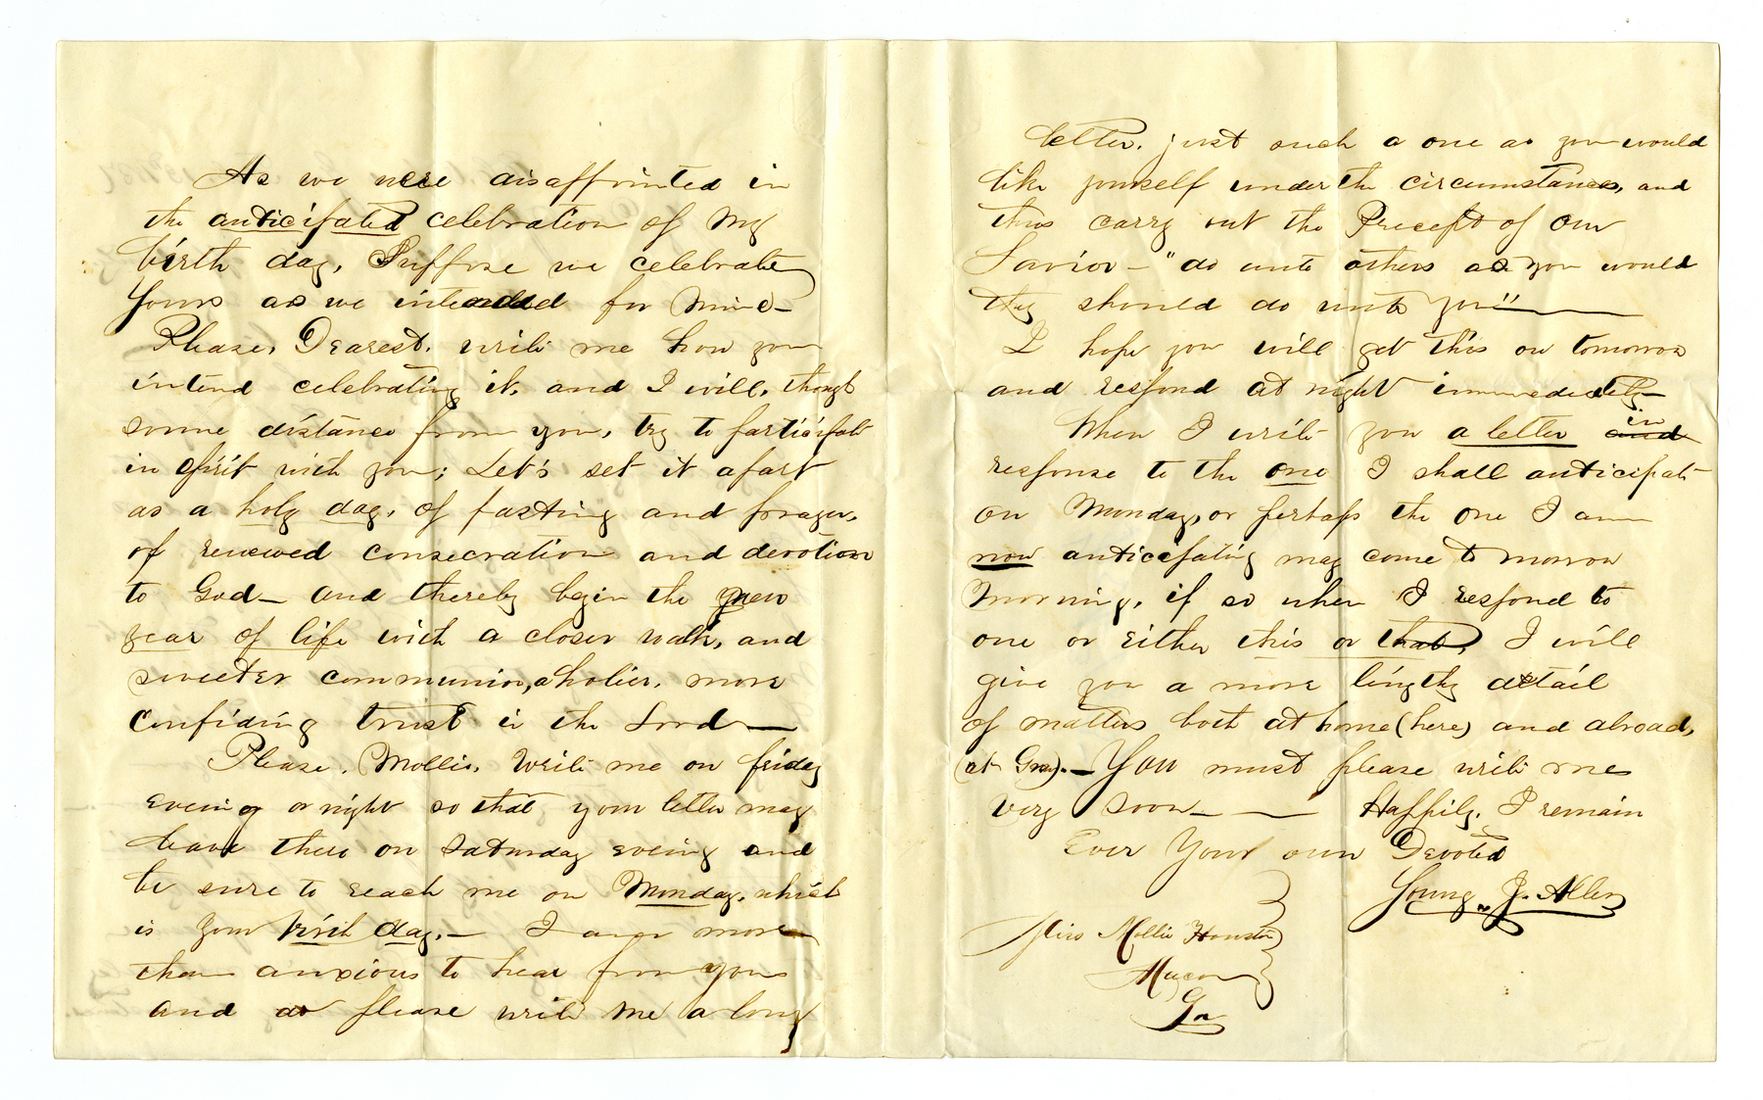 As we were disappointed in
the anticipated celebration of my
birth day, Suppose we celebrate
yours as we intended for mine—
Please, Dearest, write me how you
intend celebrating it, and I will, though
some distance from you, try to participate
in spirit with you; Let's set it apart
as a holy day, of fasting and prayer,
of renewed consecration and devotion
to God— and thereby begin the new
year of life with a closer walk, and
sweeter communion, a holier, more
confiding trust in the Lord—
Please, Mollie, write me on friday
evening or night so that your letter may
leave there on Saturday evening and
be sure to reach me on Monday, which
is your birth day.— I am more
than anxious to hear from you
and please write me a long
letter, just such a one as you would
like yourself under the circumstances, and
thus carry out the Precept of our
Savior— "do unto others as you would
they should do unto you"—
I hope you will get this on tomorrow
and respond at night immediately—
When I write you a letter and in
response to the one I shall anticipate
on Monday, or perhaps the one I am
now anticipating may come to morrow
morning, if so when I respond to
one or either this or that, I will
give you a more lengthy detail
of matters both at home (here) and abroad,
(at .—You must please write me
very soon—— Happily, I remain
Ever Your own Devoted
Young J. Allen
Miss Mollie Houston
Macon
Ga